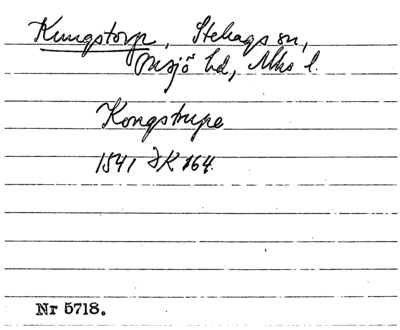 Kungstorp, Stehags sn,
Onsjö hd, Mhs l.
Kongstrupe
1541 JK 164.
Nr 5718.